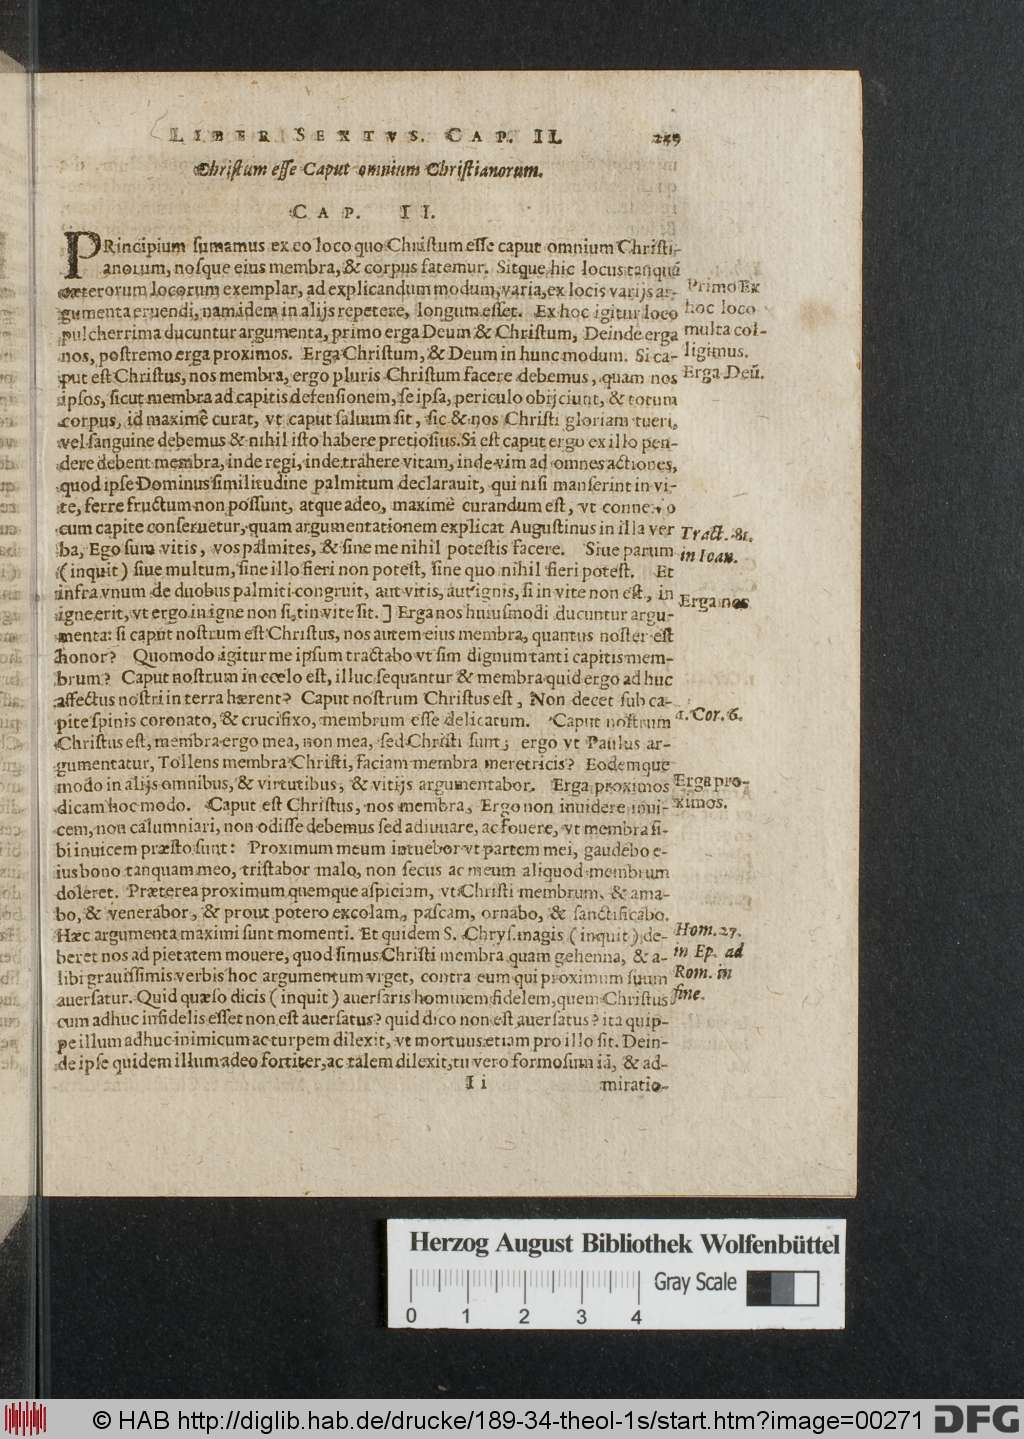 LIBER SEXTVS. CAP. II. 249
Christum esse Caput omnium Christianorum.
CAP. II.
PRincipium sumamus ex eo loco quo Christum esse caput omnium Christi-
anorum, nosque eius membra, & corpus fatemur. Sitque hic locus tanquã
cæterorum locorum exemplar, ad explicandum modum, varia, ex locis varijs ar-
gumenta eruendi, nam idem in alijs repetere, longum esset. Ex hoc igitur loco
pulcherrima ducuntur argumenta, primo erga Deum & Christum, Deinde erga
nos, postremo erga proximos. Erga Christum, & Deum in hunc modum. Si ca-
put est Christus, nos membra, ergo pluris Christum facere debemus, quam nos
ipsos, sicut membra ad capitis defensionem, se ipsa, periculo obijciunt, & totum
corpus, id maximê curat, vt caput saluum sit, sic & nos Christi gloriam tueri,
vel sanguine debemus & nihil isto habere pretiosius. Si est caput ergo ex illo pen-
dere debent membra, inde regi, inde trahere vitam, inde vim ad omnes actiones,
quod ipse Dominus similitudine palmitum declarauit, qui nisi manserint in vi-
te, ferre fructum non possunt, atque adeo, maximê curandum est, vt connexio
cum capite conseruetur, quam argumentationem explicat Augustinus in illa ver
ba, Ego sum vitis, vos palmites, & sine me nihil potestis facere. Siue parum
(inquit) siue multum, sine illo fieri non potest, sine quo nihil fieri potest. Et
infra vnum de duobus palmiti congruit, aut vitis, aut ignis, si in vite non est, in
igne erit, vt ergo in igne non sit, in vite sit. ] Erga nos huiusmodi ducuntur argu-
menta: si caput nostrum est Christus, nos autem eius membra, quantus noster est
honor? Quomodo igitur me ipsum tractabo vt sim dignum tanti capitis mem-
brum? Caput nostrum in cœlo est, illuc sequantur & membra quid ergo ad huc
affectus nostri in terra hærent? Caput nostrum Christus est, Non decet sub ca-
pite spinis coronato, & crucifixo, membrum esse delicatum. Caput nostrum
Christus est, membra ergo mea, non mea, sed Christi sunt; ergo vt Paulus ar-
gumentatur, Tollens membra Christi, faciam membra meretricis? Eodemque
modo in alijs omnibus, & virtutibus, & vitijs argumentabor. Erga proximos
dicam hoc modo. Caput est Christus, nos membra, Ergo non inuidere inui-
cem, non calumniari, non odisse debemus sed adiuuare, ac fouere, vt membra si-
bi inuicem præsto sunt: Proximum meum intuebor vt partem mei, gaudebo e-
ius bono tanquam meo, tristabor malo, non secus ac meum aliquod membrum
doleret. Præterea proximum quemque aspiciam, vt Christi membrum, & ama-
bo, & venerabor, & prout potero excolam, pascam, ornabo, & sanctificabo.
Hæc argumenta maximi sunt momenti. Et quidem S. Chrys. magis (inquit) de-
beret nos ad pietatem mouere, quod simus Christi membra quam gehenna, & a-
libi grauissimis verbis hoc argumentum vrget, contra eum qui proximum suum
auersatur. Quid quæso dicis (inquit) auersaris hominem fidelem, quem Christus
cum adhuc infidelis esset non est auersatus? quid dico non est auersatus? ita quip-
pe illum adhuc inimicum ac turpem dilexit, vt mortuus etiam pro illo sit. Dein-
de ipse quidem illum adeo fortiter, ac talem dilexit, tu vero formosum iã, & ad-
I i miratio-
Primo Ex
hoc loco
multa col-
ligimus.
Erga Deũ.
Tract. 81.
in Ioan.
Erga nos
1. Cor. 6.
Erga pro-
ximos.
Hom. 27.
in Ep. ad
Rom. in
fine.
Herzog August Bibliothek Wolfenbüttel
Gray Scale
0 1 2 3 4
© HAB http://diglib.hab.de/drucke/189-34-theol-1s/start.htm?image=00271 DFG